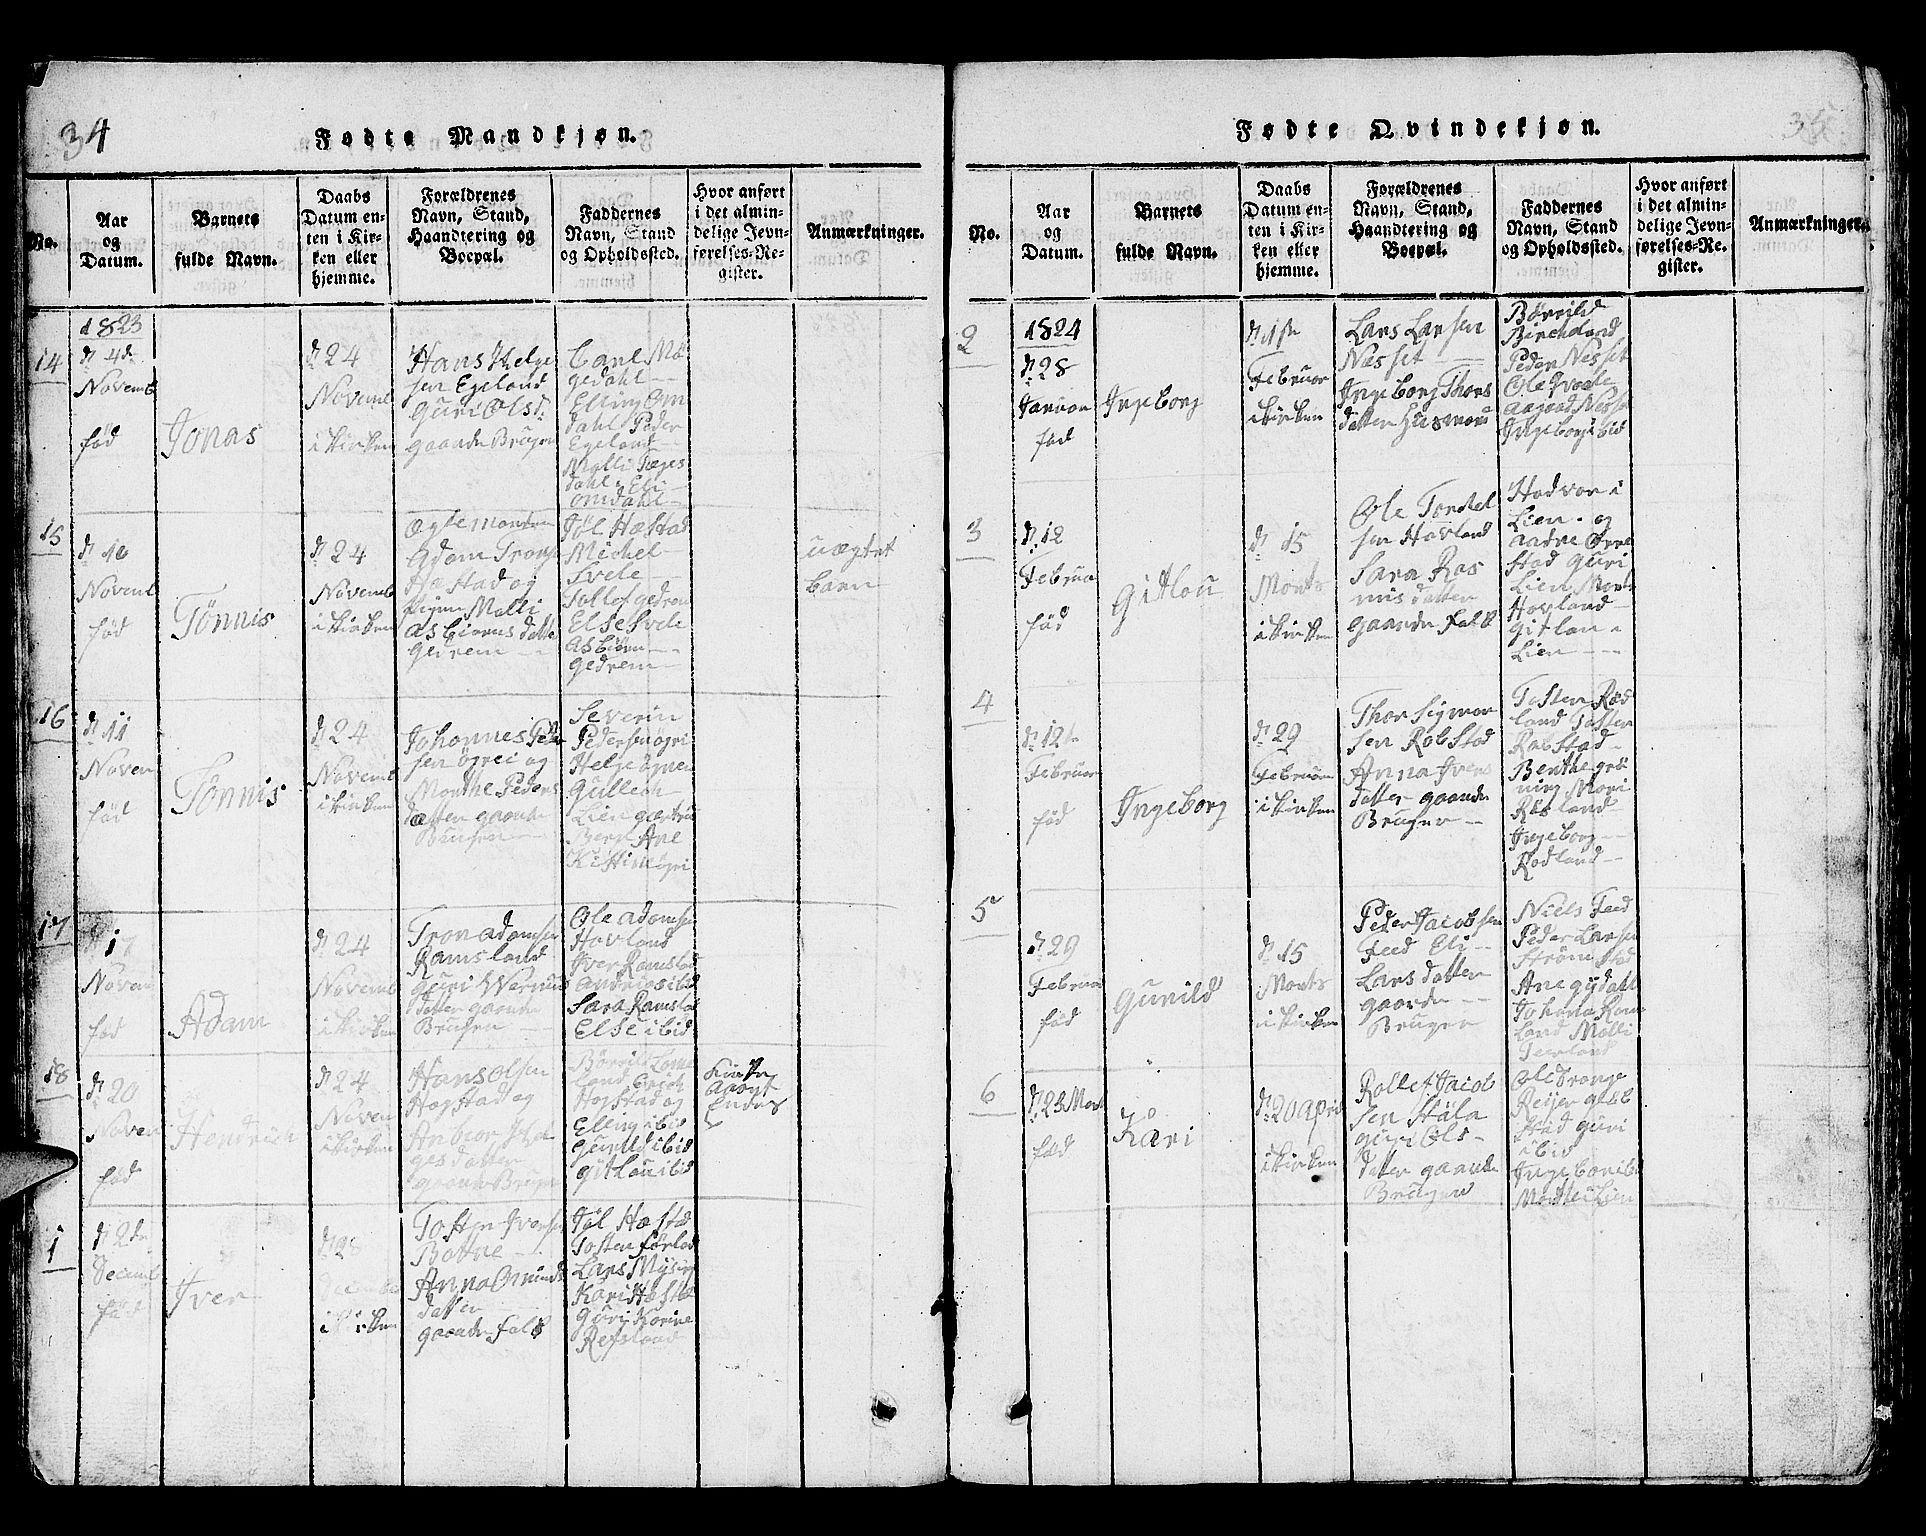 34
Fødte Mandkjøn.
No.
Aar
og
Datum.
Barnets
fulde Navn.
Daabs
Datum en-
ten i Kir-
ken eller
hjemme.
Forældrenes
Navn, Stand,
Haandtering og
Boepæl.
Faddernes
Navn, Stand
og Opholdssted.
Hvor anført
i det almin-
delige Jevn-
førelses-Re-
gister.
Anmærkninger.
14
1823
d. 4de
Novemb
fød
Jonas
d. 24
Novemb
i kirken
Hans Helge
sen Egeland
Guri Olsd:
gaardbruger
Carl Mø
gedahl
Elling Om
dahl Peder
Egeland
Malli
dahl Eli
Omdahl
15
d. 10
Novemb
fød
Tønnis
d. 24
Novemb
i kirken
Adam Trons
Hæstad og
pigen Malli
Asbiørns datte
Geirem
Jøl Hæstad
Michel
Svele
Tollef gedrem
Else Svele
Asbiørn
Gedrem
uægtet
barn
16
d. 11
Novem
fød
Tønnis
d. 24
Novemb
i kirken
Johannes Pede
sen øgrei og
Marthe Peders
datter gaard
Bruger
Severin
Pedersen øgri
Helge øgrei
Gullech
Lien giertru
Berge Ane
Kistine øgri
17
d. 17
Novem
fød
Adam
d. 24
Novemb
i kirken
Tron Adamsen
Ramsland
Guri
datter gaard
Bruger
Ole Adamsen
Hovland
Iver Ramslad
Andrias ibid
Sara Ramsla
Else ibid
18
d. 20
Novem
fød
Hendrich
d. 24
Novem
i kirken
Hans Olsen
Hogstad og
Anbior Hel
ges datter
gaard Bruger
Børrild
land
Hogstad og
Elling ibid
Gunild ibid
Gitlou ibid
1
d. 2de
Decemb
fød
Iver
d. 28
December
i kirken
Tosten Iversen
Botne
Anna Omunds
datter
gaard folk
Jøl Hæstad
Tosten
Lars Mysing
Kari Hæstad
Guri Karine
Refsland
35
Fødte Qvindekjøn.
No.
Aar
og
Datum.
Barnets
fulde Navn.
Daabs
Datum en-
ten i Kir-
ken eller
hjemme.
Forældrenes
Navn, Stand,
Haandtering og
Boepæl.
Faddernes
Navn, Stand
og Opholdssted.
Hvor anført
i det almin-
delige Jevn-
førelses-Re-
gister.
Anmærkninger.
2
1824
d. 28
Januar
fød
Ingeborg
d. 1ste
Februar
i kirken
Lars Larsen
Nesset
Ingeborg Thors
datter Husmand
Børrild
Bircheland
Peder Nesset
Ole
Aagaad Nesse
Ingeborg ibid
3
d. 12
Februa
fød
Gitlou
d. 15
Marts
i kirken
Ole Torkel
sen Hovland
Sara Ras
mis datter
gaard folk
Hadvor i
Lien og
Aadne Ørre
stad Guri
Lien Marte
Hovland
Gitlau
Lien
4
d. 12te
Februar
fød
Ingeborg
d. 29
Februar
i kirken
Thor Sigvar
sen Robstad
Anna Ivers
datter gaard
Bruger
Tosten Rød
land Tosten
Robstad
Benthe grø
ning Mari
Røsland
Ingeborg
Rodland
5
d. 29
Februa
fød
Gunild
d. 15
Marts
i kirken
Peder Jacobsen
Feed Eli
Lars datter
gaard
Bruger
Niels Feed
Peder Larsen
Strømstad
Ane gydahl
Johana Ram
land Malli
6
d. 23 Mart
fød
Kari
d. 20 April
i kirken
Rollef Jacob
sen Stüla
Guri Ols
datter gaard
Bruger
Ole Trønge
Reijer
stad Guri
ibid
Ingebor ibid
Marthe Lien